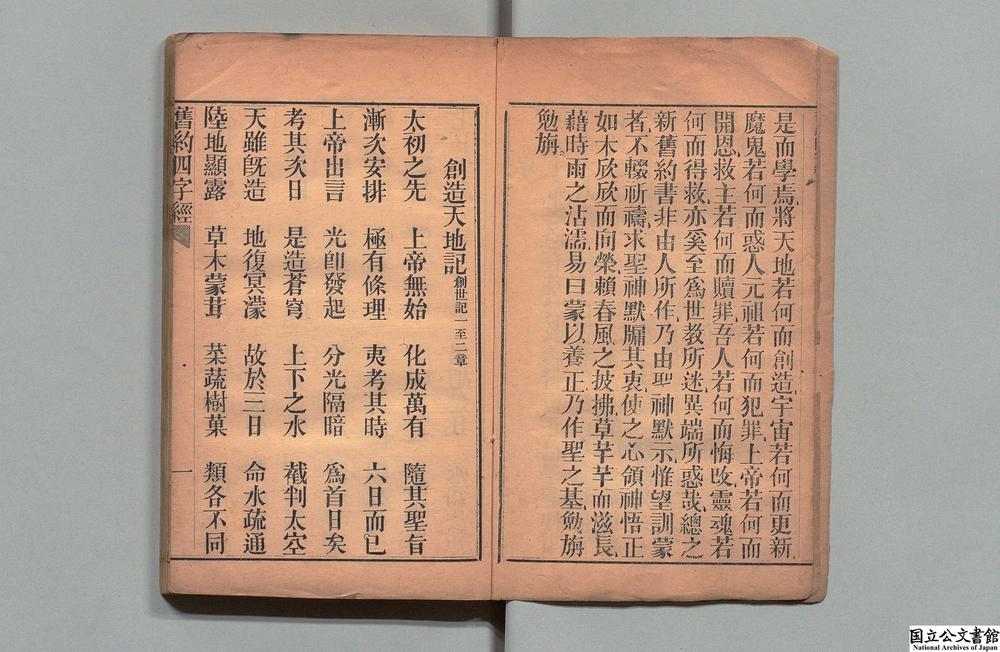 是而學焉將天地若何而創造宇宙若何而更新
魔鬼若何而惑人元祖若何而犯罪上帝若何而
開恩救主若何而贖罪吾人若何而悔改靈魂若
何而得救亦奚至爲世教所迷異端所惑哉總之
新舊約書非由人所作乃由聖神默示惟望訓蒙
者不輟祈禱求聖神默牖其衷使之心領神悟正
如木欣欣而向榮賴春風之披拂草芊芊而滋長
藉時雨之沾濡易曰蒙以養正乃作聖之基勉旃
勉旃
創造天地記 創世記一至二章
太初之先 上帝無始 化成萬有 隨其聖旨
漸次安排 極有條理 夷考其時 六日而已
上帝出言 光卽發起 分光隔暗 爲首日矣
考其次日 是造蒼穹 上下之水 截判太空
天雖旣造 地復冥濛 故於三日 命水疏通
陸地顯露 草木蒙茸 菜蔬樹菓 類各不同
舊約四字經 一
国立公文書館
National Archives of Japan